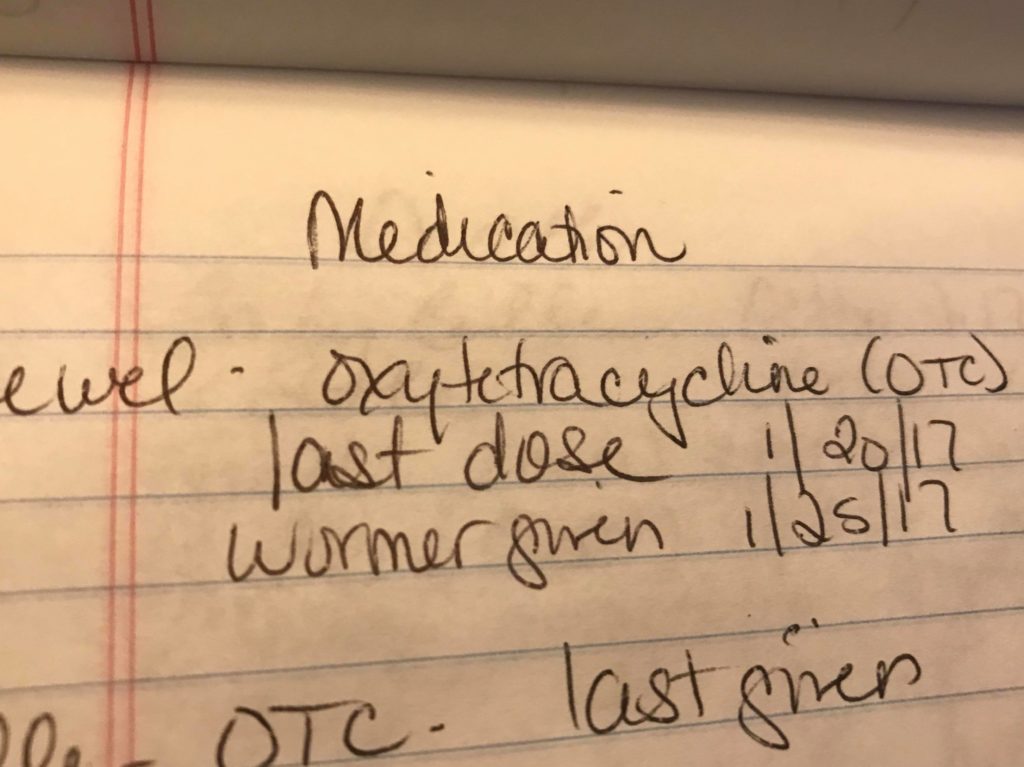 Medication
ewel - oxytetracycline (OTC)
last dose 1/20/17
wormer given 1/25/17
OTC - last given